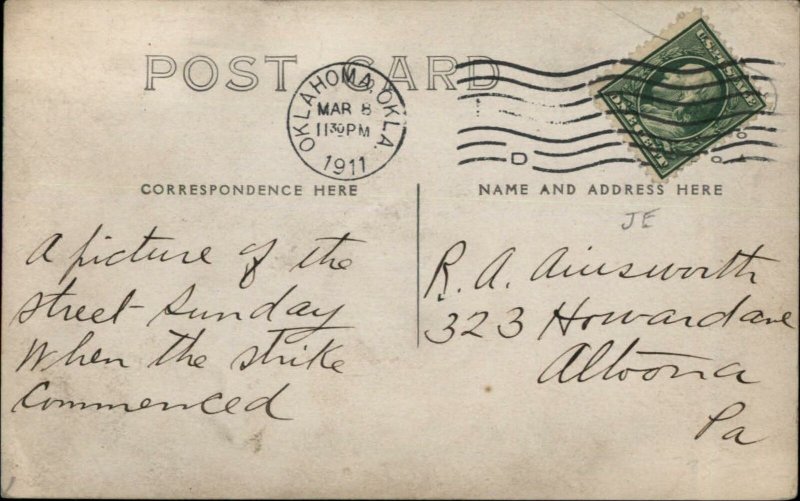 POST CARD
OKLAHOMA, OKLA.
MAR 8
11 30 PM
1911
U.S. POSTAGE
ONE CENT
D
CORRESPONDENCE HERE
NAME AND ADDRESS HERE
JE
A picture of the
street Sunday
When the strike
Commenced
R. A. Ainsworth
323 Howard ave
Altoona
Pa